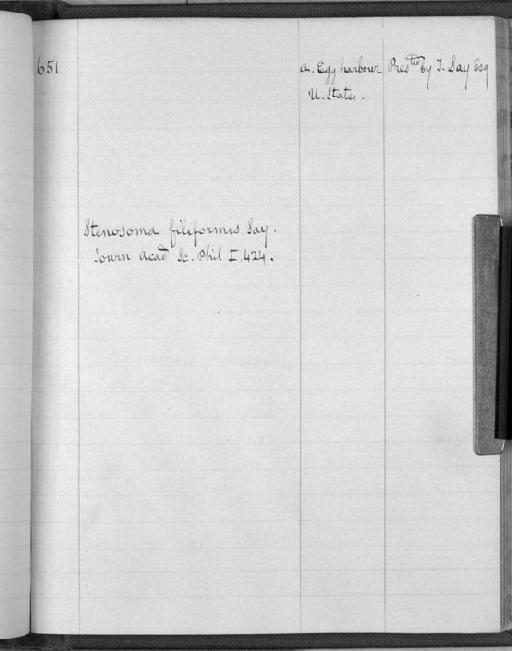 651.
a. Egg harbour
U. States.
Presᵗᵈ by T. Say Esq
Stenosoma filiformis, Say.
Journ Acad Sc. Phil I, 424.